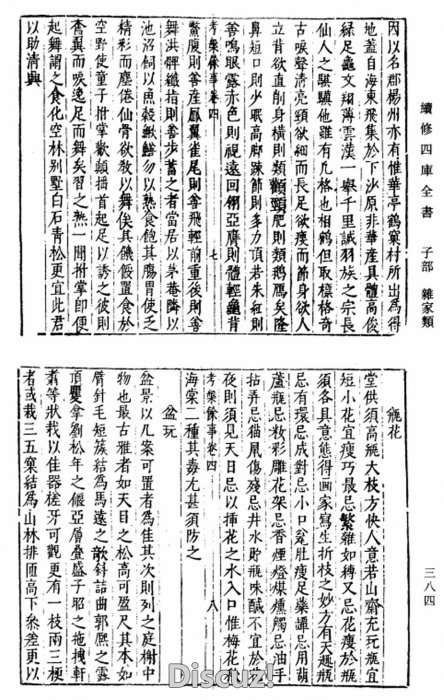 續修四庫全書　子部　雜家類
因以名郡楊州亦有惟華亭鶴窠村所出為得
地蓋自海東飛集於下沙原非華産具體高俊
緑足龜文翔薄雲漢一舉千里誠羽族之宗長
仙人之騏驥他雖有几格也相鶴但取標格奇
古唳聲清亮頸欲細而長足欲瘦而節身欲人
立背欲直削身横則類鸛鶴肥則類鵝鴈矣隆
鼻短口則少眠高脚踈節則多力頂若朱紅則
善鳴眼露赤色則視遠回翎亞膺則體輕龜背
考槃餘事卷四　七
鱉腹則善産鳳翼雀尾則善飛輕前重後則善
舞洪髀纖指則善步蓄之者當居以茅菴隣以
池沼飼以魚穀鰍鱔勿以熟食飽其腸胃使乏
精彩而塵倦仙骨欲教以舞俟其饑餒置食於
空野使童子拊掌歡顛揺首起足以誘之彼則
奮翼而唳逸足而舞矣習之熟一聞拊掌即便
起舞謂之食化空林别墅白石青松更宜此君
以助清興
三八四
瓶花
堂供須高瓶大枝方快人意若山齋充玩瓶宜
短小花宜瘦巧最忌繁雜如縛又忌花瘦於瓶
須各具意態得画家寫生折枝之妙方有天趣瓶
忌有環忌成對忌小口瓮肚瘦足藥罈忌用葫
蘆瓶忌粧彩雕花架忌香煙燈煤燻觸忌油手
拈弄忌猫鼠傷殘忌井水貯瓶味醎不宜於花
夜則須見天日忌以揷花之水入口惟梅花秋
考槃餘事卷四　八
海棠二種其毒尤甚須防之
盆玩
盆景以几案可置者為佳其次則列之庭榭中
物也最古雅者如天目之松高可盈尺其本如
臂針毛短簇結為馬遠之欹斜詰曲郭熙之露
頂攫拿劉松年之偃亞層疊盛子昭之拖拽軒
翥等狀栽以佳器槎牙可觀更有一枝兩三梗
者或栽三五窠結為山林排匝高下參差更以
Discuz!